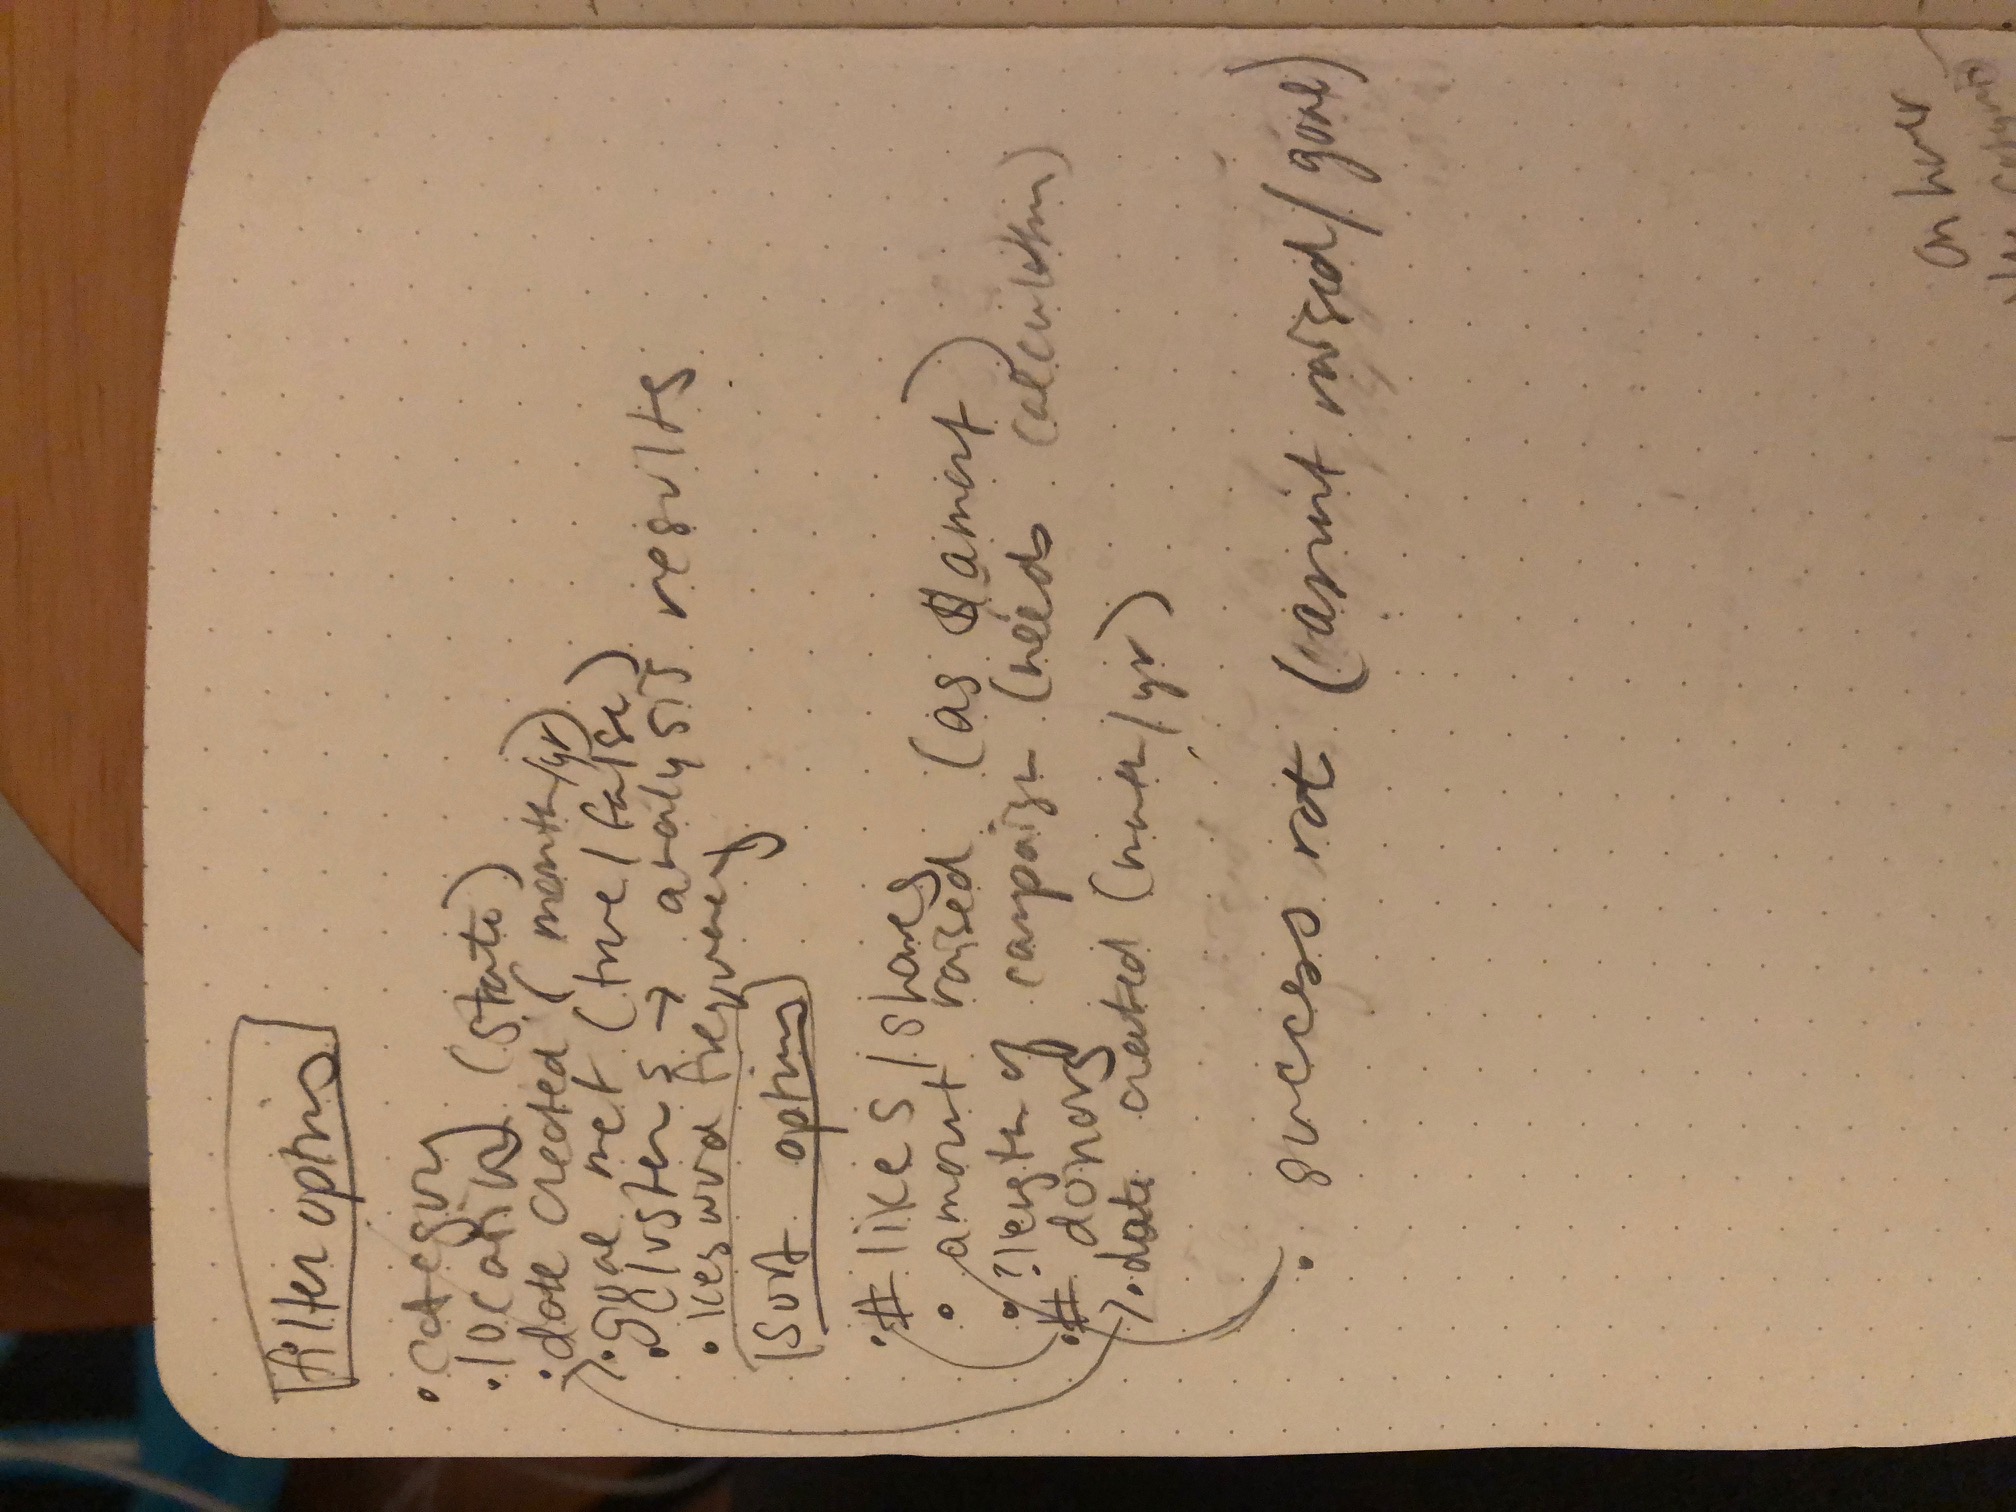 filter options
• category
• location (state)
• date created (month/yr)
• goal met (true/false)
• clusters → analysis results
• keyword frequency
sort options
• # likes/shares
• amount raised (as $ amount)
• ? length of campaign (needs calculation)
• # donors
• date created (month/yr)
• success rate (amount raised/goal)
on hover